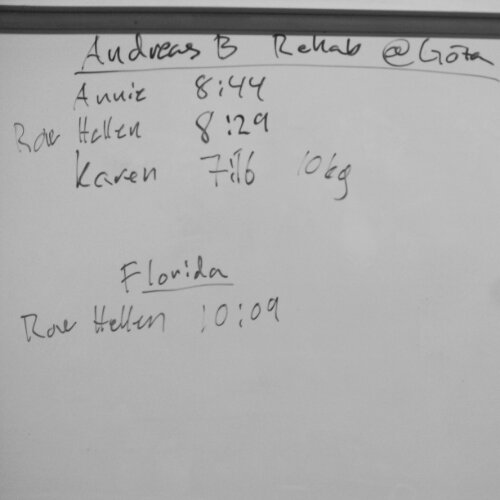 Andreas B Rehab @Göta
Annie 8:44
Row Hellen 8:29
Karen 7:16 10kg
Florida
Row Hellen 10:09